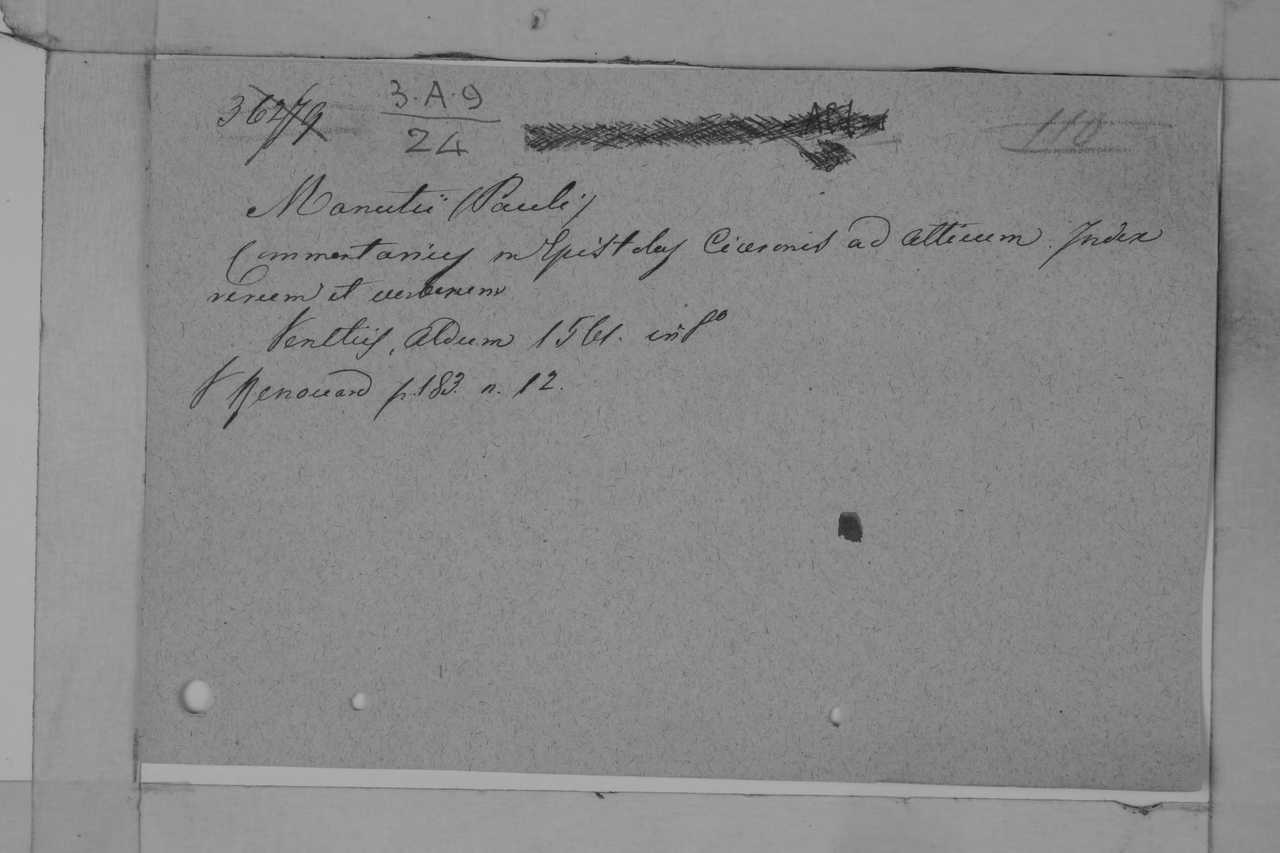 36279 3.A.9 110
24
Manutii (Pauli)
Commentarius in Epistolas Ciceronis ad Atticum. Index
rerum et verborum
Venetiis, Aldum 1561. in fº
V Renouard p. 183. n. 12.